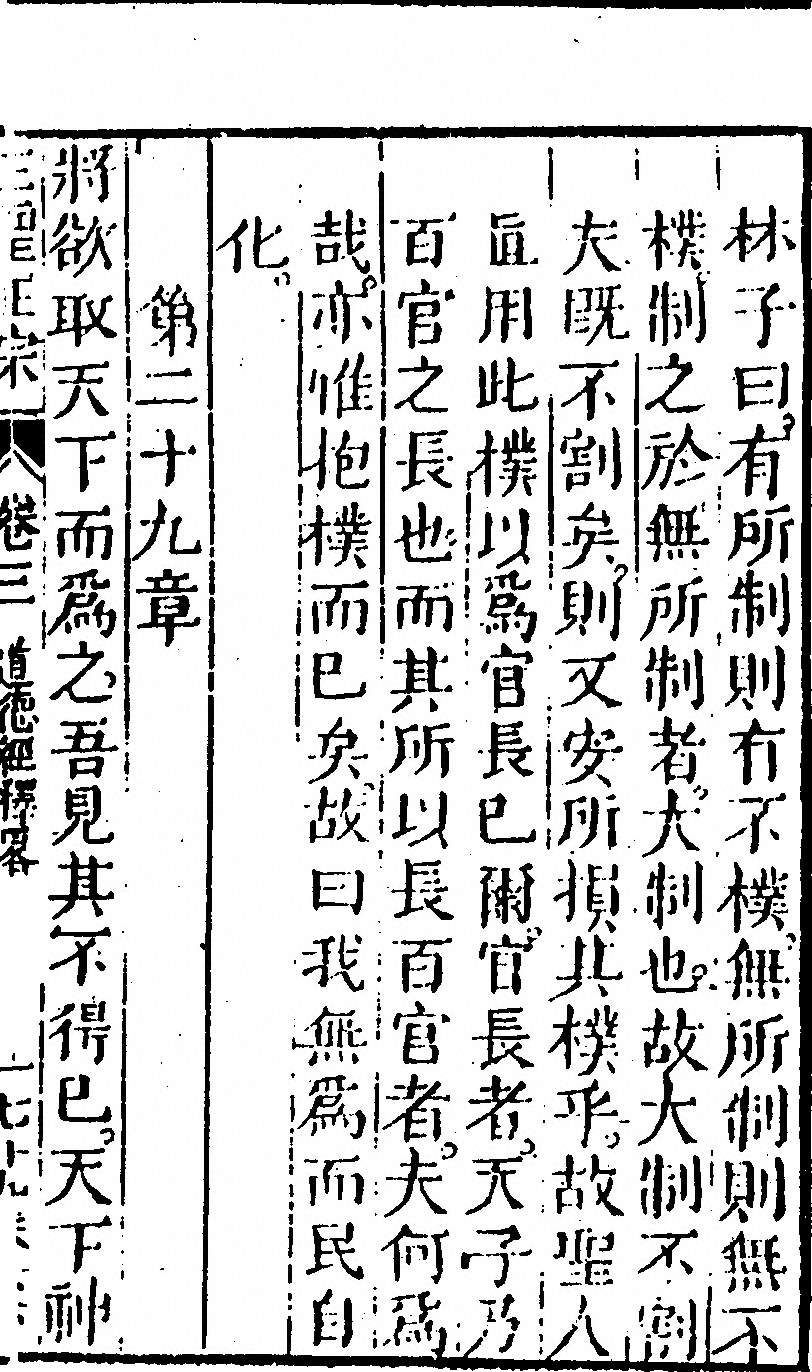 林子曰有所制則有不樸無所制則無不
樸制之於無所制者大制也故大制不割
夫既不割矣則又安所損其樸乎故聖人
直用此樸以爲官長已爾官長者天子乃
百官之長也而其所以長百官者夫何爲
哉亦惟抱樸而已矣故曰我無爲而民自
化
第二十九章
將欲取天下而爲之吾見其不得已天下神
三聖正宗 卷三 道德經釋畧